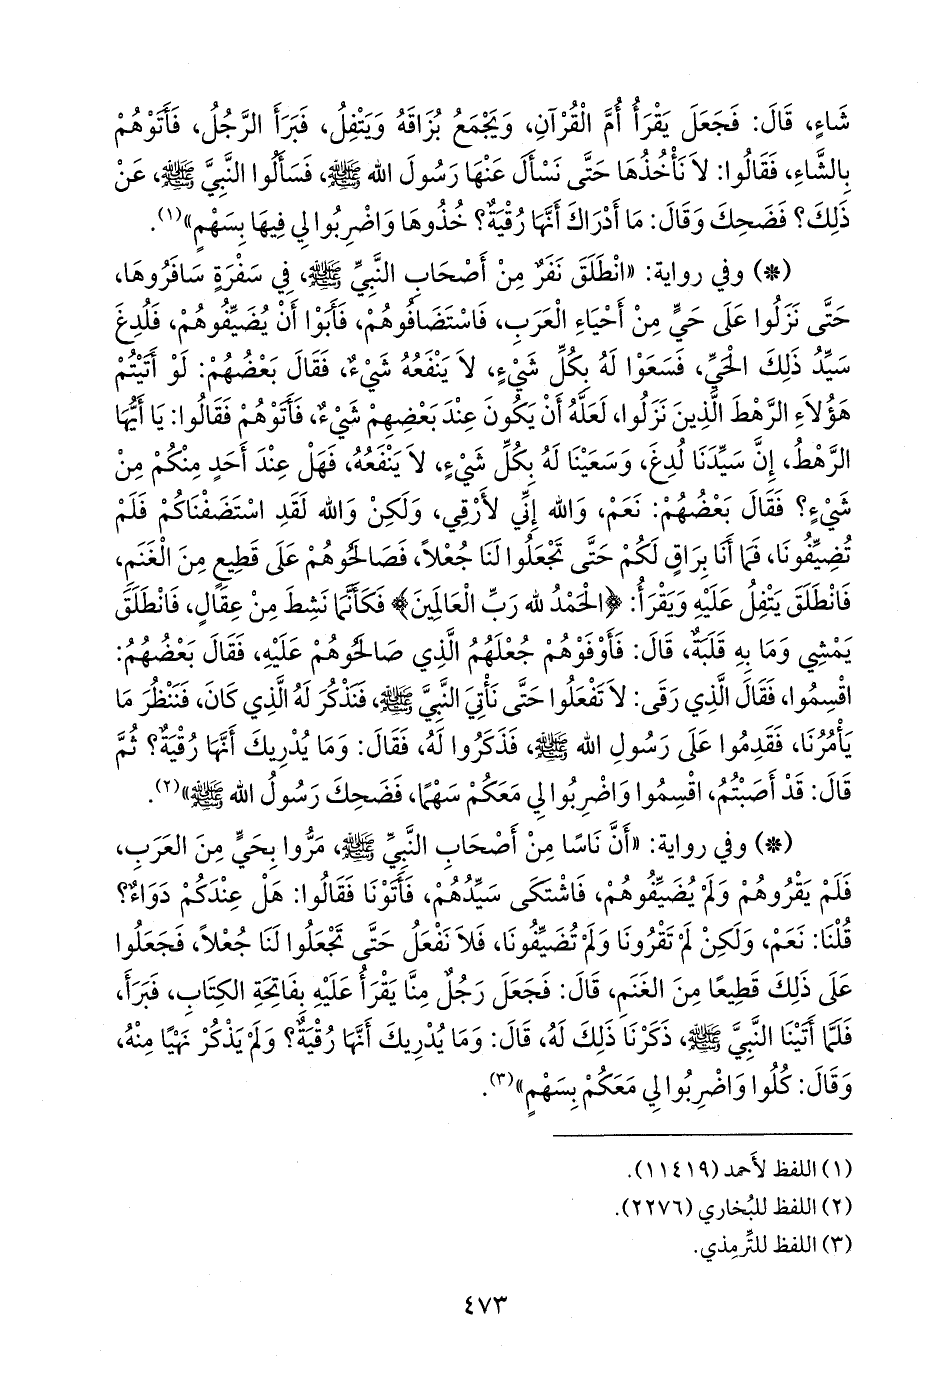 شَاءٍ، قَالَ: فَجَعَلَ يَقْرَأُ أُمَّ الْقُرْآنِ، وَيَجْمَعُ بُزَاقَهُ وَيَتْفِلُ، فَبَرَأَ الرَّجُلُ، فَأَتَوْهُمْ
بِالشَّاءِ، فَقَالُوا: لاَ نَأْخُذُهَا حَتَّى نَسْأَلَ عَنْهَا رَسُولَ الله ﷺ، فَسَأَلُوا النَّبِيَّ ﷺ، عَنْ
ذَلِكَ؟ فَضَحِكَ وَقَالَ: مَا أَدْرَاكَ أَنَّهَا رُقْيَةٌ؟ خُذُوهَا وَاضْرِبُوا لِي فِيهَا بِسَهْمٍ»(١).
(*) وفي رواية: «انْطَلَقَ نَفَرٌ مِنْ أَصْحَابِ النَّبِيِّ ﷺ، فِي سَفْرَةٍ سَافَرُوهَا،
حَتَّى نَزَلُوا عَلَى حَيٍّ مِنْ أَحْيَاءِ الْعَرَبِ، فَاسْتَضَافُوهُمْ، فَأَبَوْا أَنْ يُضَيِّفُوهُمْ، فَلُدِغَ
سَيِّدُ ذَلِكَ الْحَيِّ، فَسَعَوْا لَهُ بِكُلِّ شَيْءٍ، لاَ يَنْفَعُهُ شَيْءٌ، فَقَالَ بَعْضُهُمْ: لَوْ أَتَيْتُمْ
هَؤُلاَءِ الرَّهْطَ الَّذِينَ نَزَلُوا، لَعَلَّهُ أَنْ يَكُونَ عِنْدَ بَعْضِهِمْ شَيْءٌ، فَأَتَوْهُمْ فَقَالُوا: يَا أَيُّهَا
الرَّهْطُ، إِنَّ سَيِّدَنَا لُدِغَ، وَسَعَيْنَا لَهُ بِكُلِّ شَيْءٍ، لاَ يَنْفَعُهُ، فَهَلْ عِنْدَ أَحَدٍ مِنْكُمْ مِنْ
شَيْءٍ؟ فَقَالَ بَعْضُهُمْ: نَعَمْ، وَالله إِنِّي لأَرْقِي، وَلَكِنْ وَالله لَقَدِ اسْتَضَفْنَاكُمْ فَلَمْ
تُضِيِّفُونَا، فَمَا أَنَا بِرَاقٍ لَكُمْ حَتَّى تَجْعَلُوا لَنَا جُعْلاً، فَصَالَحُوهُمْ عَلَى قَطِيعٍ مِنَ الْغَنَمِ،
فَانْطَلَقَ يَتْفِلُ عَلَيْهِ وَيَقْرَأُ: ﴿الْحَمْدُ لله رَبِّ الْعَالَمِينَ﴾ فَكَأَنَّمَا نَشِطَ مِنْ عِقَالٍ، فَانْطَلَقَ
يَمْشِي وَمَا بِهِ قَلَبَةٌ، قَالَ: فَأَوْفَوْهُمْ جُعْلَهُمُ الَّذِي صَالَحُوهُمْ عَلَيْهِ، فَقَالَ بَعْضُهُمُ:
اقْسِمُوا، فَقَالَ الَّذِي رَقَى: لاَ تَفْعَلُوا حَتَّى نَأْتِيَ النَّبِيَّ ﷺ، فَنَذْكُرَ لَهُ الَّذِي كَانَ، فَنَنْظُرَ مَا
يَأْمُرُنَا، فَقَدِمُوا عَلَى رَسُولِ الله ﷺ، فَذَكَرُوا لَهُ، فَقَالَ: وَمَا يُدْرِيكَ أَنَّهَا رُقْيَةٌ؟ ثُمَّ
قَالَ: قَدْ أَصَبْتُمُ، اقْسِمُوا وَاضْرِبُوا لِي مَعَكُمْ سَهْمًا، فَضَحِكَ رَسُولُ الله ﷺ»(٢).
(*) وفي رواية: «أَنَّ نَاسًا مِنْ أَصْحَابِ النَّبِيِّ ﷺ، مَرُّوا بِحَيٍّ مِنَ العَرَبِ،
فَلَمْ يَقْرُوهُمْ وَلَمْ يُضَيِّفُوهُمْ، فَاشْتَكَى سَيِّدُهُمْ، فَأَتَوْنَا فَقَالُوا: هَلْ عِنْدَكُمْ دَوَاءٌ؟
قُلْنَا: نَعَمْ، وَلَكِنْ لَمْ تَقْرُونَا وَلَمْ تُضَيِّفُونَا، فَلاَ نَفْعَلُ حَتَّى تَجْعَلُوا لَنَا جُعْلاً، فَجَعَلُوا
عَلَى ذَلِكَ قَطِيعًا مِنَ الغَنَمِ، قَالَ: فَجَعَلَ رَجُلٌ مِنَّا يَقْرَأُ عَلَيْهِ بِفَاتِحَةِ الكِتَابِ، فَبَرَأَ،
فَلَمَّا أَتَيْنَا النَّبِيَّ ﷺ، ذَكَرْنَا ذَلِكَ لَهُ، قَالَ: وَمَا يُدْرِيكَ أَنَّهَا رُقْيَةٌ؟ وَلَمْ يَذْكُرْ نَهْيًا مِنْهُ،
وَقَالَ: كُلُوا وَاضْرِبُوا لِي مَعَكُمْ بِسَهْمٍ»(٣).
(١) اللفظ لأَحمد (١١٤١٩).
(٢) اللفظ للبُخاري (٢٢٧٦).
(٣) اللفظ للتِّرمِذي.
٤٧٣